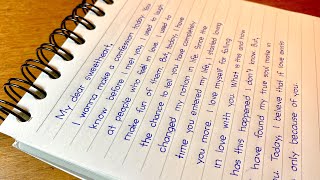 My dear sweetheart,
I wanna make a confession today. You
know, before I met you, I used to laugh
at people who fell in love. I used to
make fun of them. But, today, I have
the chance to tell you have completely
changed my notion in life. Since the
time you entered my life, I started loving
you more. I love myself for falling
in love with you. What is this and how
has this happened I don't know. But,
have found my true soul mate in
u. Today, I believe that if love exists
only because of you